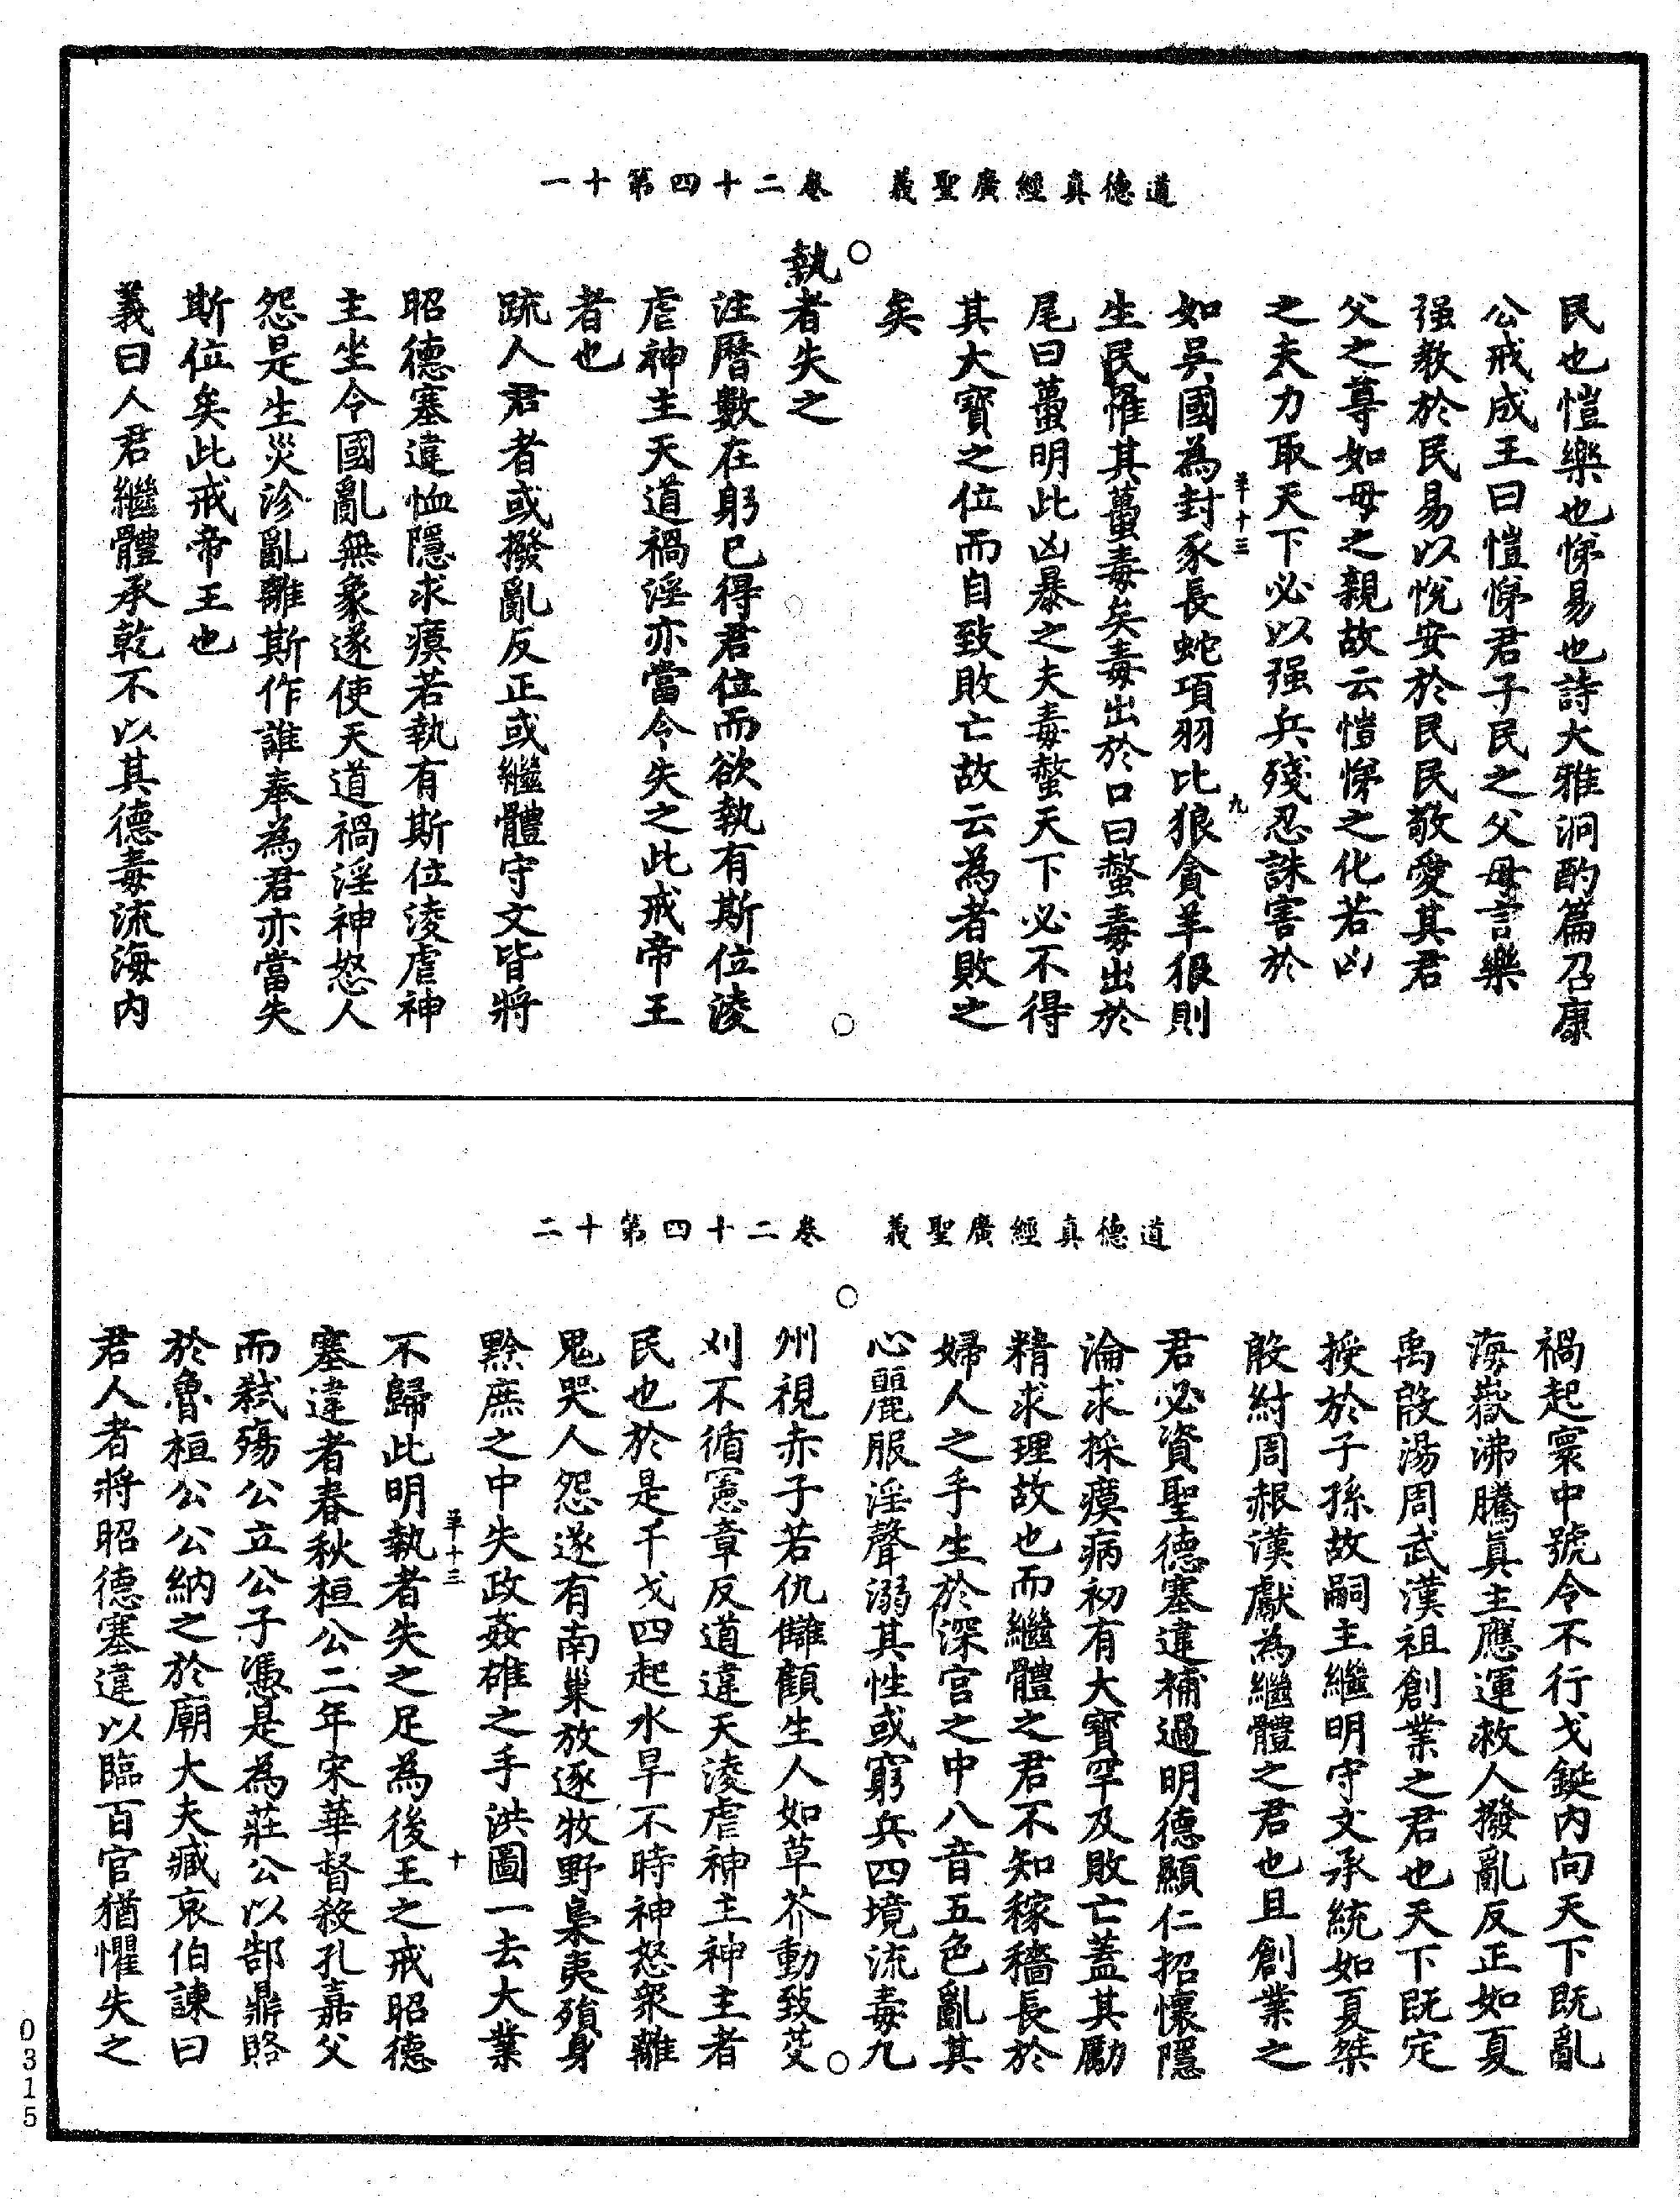 道德真經廣聖義　卷二十四第十一
民也愷樂也悌易也詩大雅泂酌篇召康
公戒成王曰愷悌君子民之父母言樂
强教於民易以悅安於民民敬愛其君
父之尊如母之親故云愷悌之化若凶
之夫力取天下必以强兵殘忍誅害於
草十三　九
如吳國為封豕長蛇項羽比狼貪羊狠則
生民惟其蠆毒矣毒出於口曰螫毒出於
尾曰蠆明此凶暴之夫毒螫天下必不得
其大寶之位而自致敗亡故云為者敗之
矣
執者失之
注曆數在躬已得君位而欲執有斯位淩
虐神主天道禍淫亦當令失之此戒帝王
者也
疏人君者或撥亂反正或繼體守文皆將
昭德塞違恤隱求瘼若執有斯位淩虐神
主坐令國亂無象遂使天道禍淫神怒人
怨是生災沴亂離斯作誰奉為君亦當失
斯位矣此戒帝王也
義曰人君繼體承乾不以其德毒流海內
道德真經廣聖義　卷二十四第十二
禍起寰中號令不行戈鋋內向天下既亂
海嶽沸騰真主應運救人撥亂反正如夏
禹殷湯周武漢祖創業之君也天下既定
授於子孫故嗣主繼明守文承統如夏桀
殷紂周赧漢獻為繼體之君也且創業之
君必資聖德塞違補過明德顯仁招懷隱
淪求採瘼病初有大寶罕及敗亡蓋其勵
精求理故也而繼體之君不知稼穡長於
婦人之手生於深宮之中八音五色亂其
心麗服淫聲溺其性或窮兵四境流毒九
州視赤子若仇讎顧生人如草芥動致芟
刈不循憲章反道違天淩虐神主神主者
民也於是千戈四起水旱不時神怒衆離
鬼哭人怨遂有南巢放逐牧野梟夷殞身
黔庶之中失政姦雄之手洪圖一去大業
草十三　十
不歸此明執者失之足為後王之戒昭德
塞違者春秋桓公二年宋華督殺孔嘉父
而弒殤公立公子馮是為莊公以郜鼎賂
於魯桓公公納之於廟大夫臧哀伯諫曰
君人者將昭德塞違以臨百官猶懼失之
0315